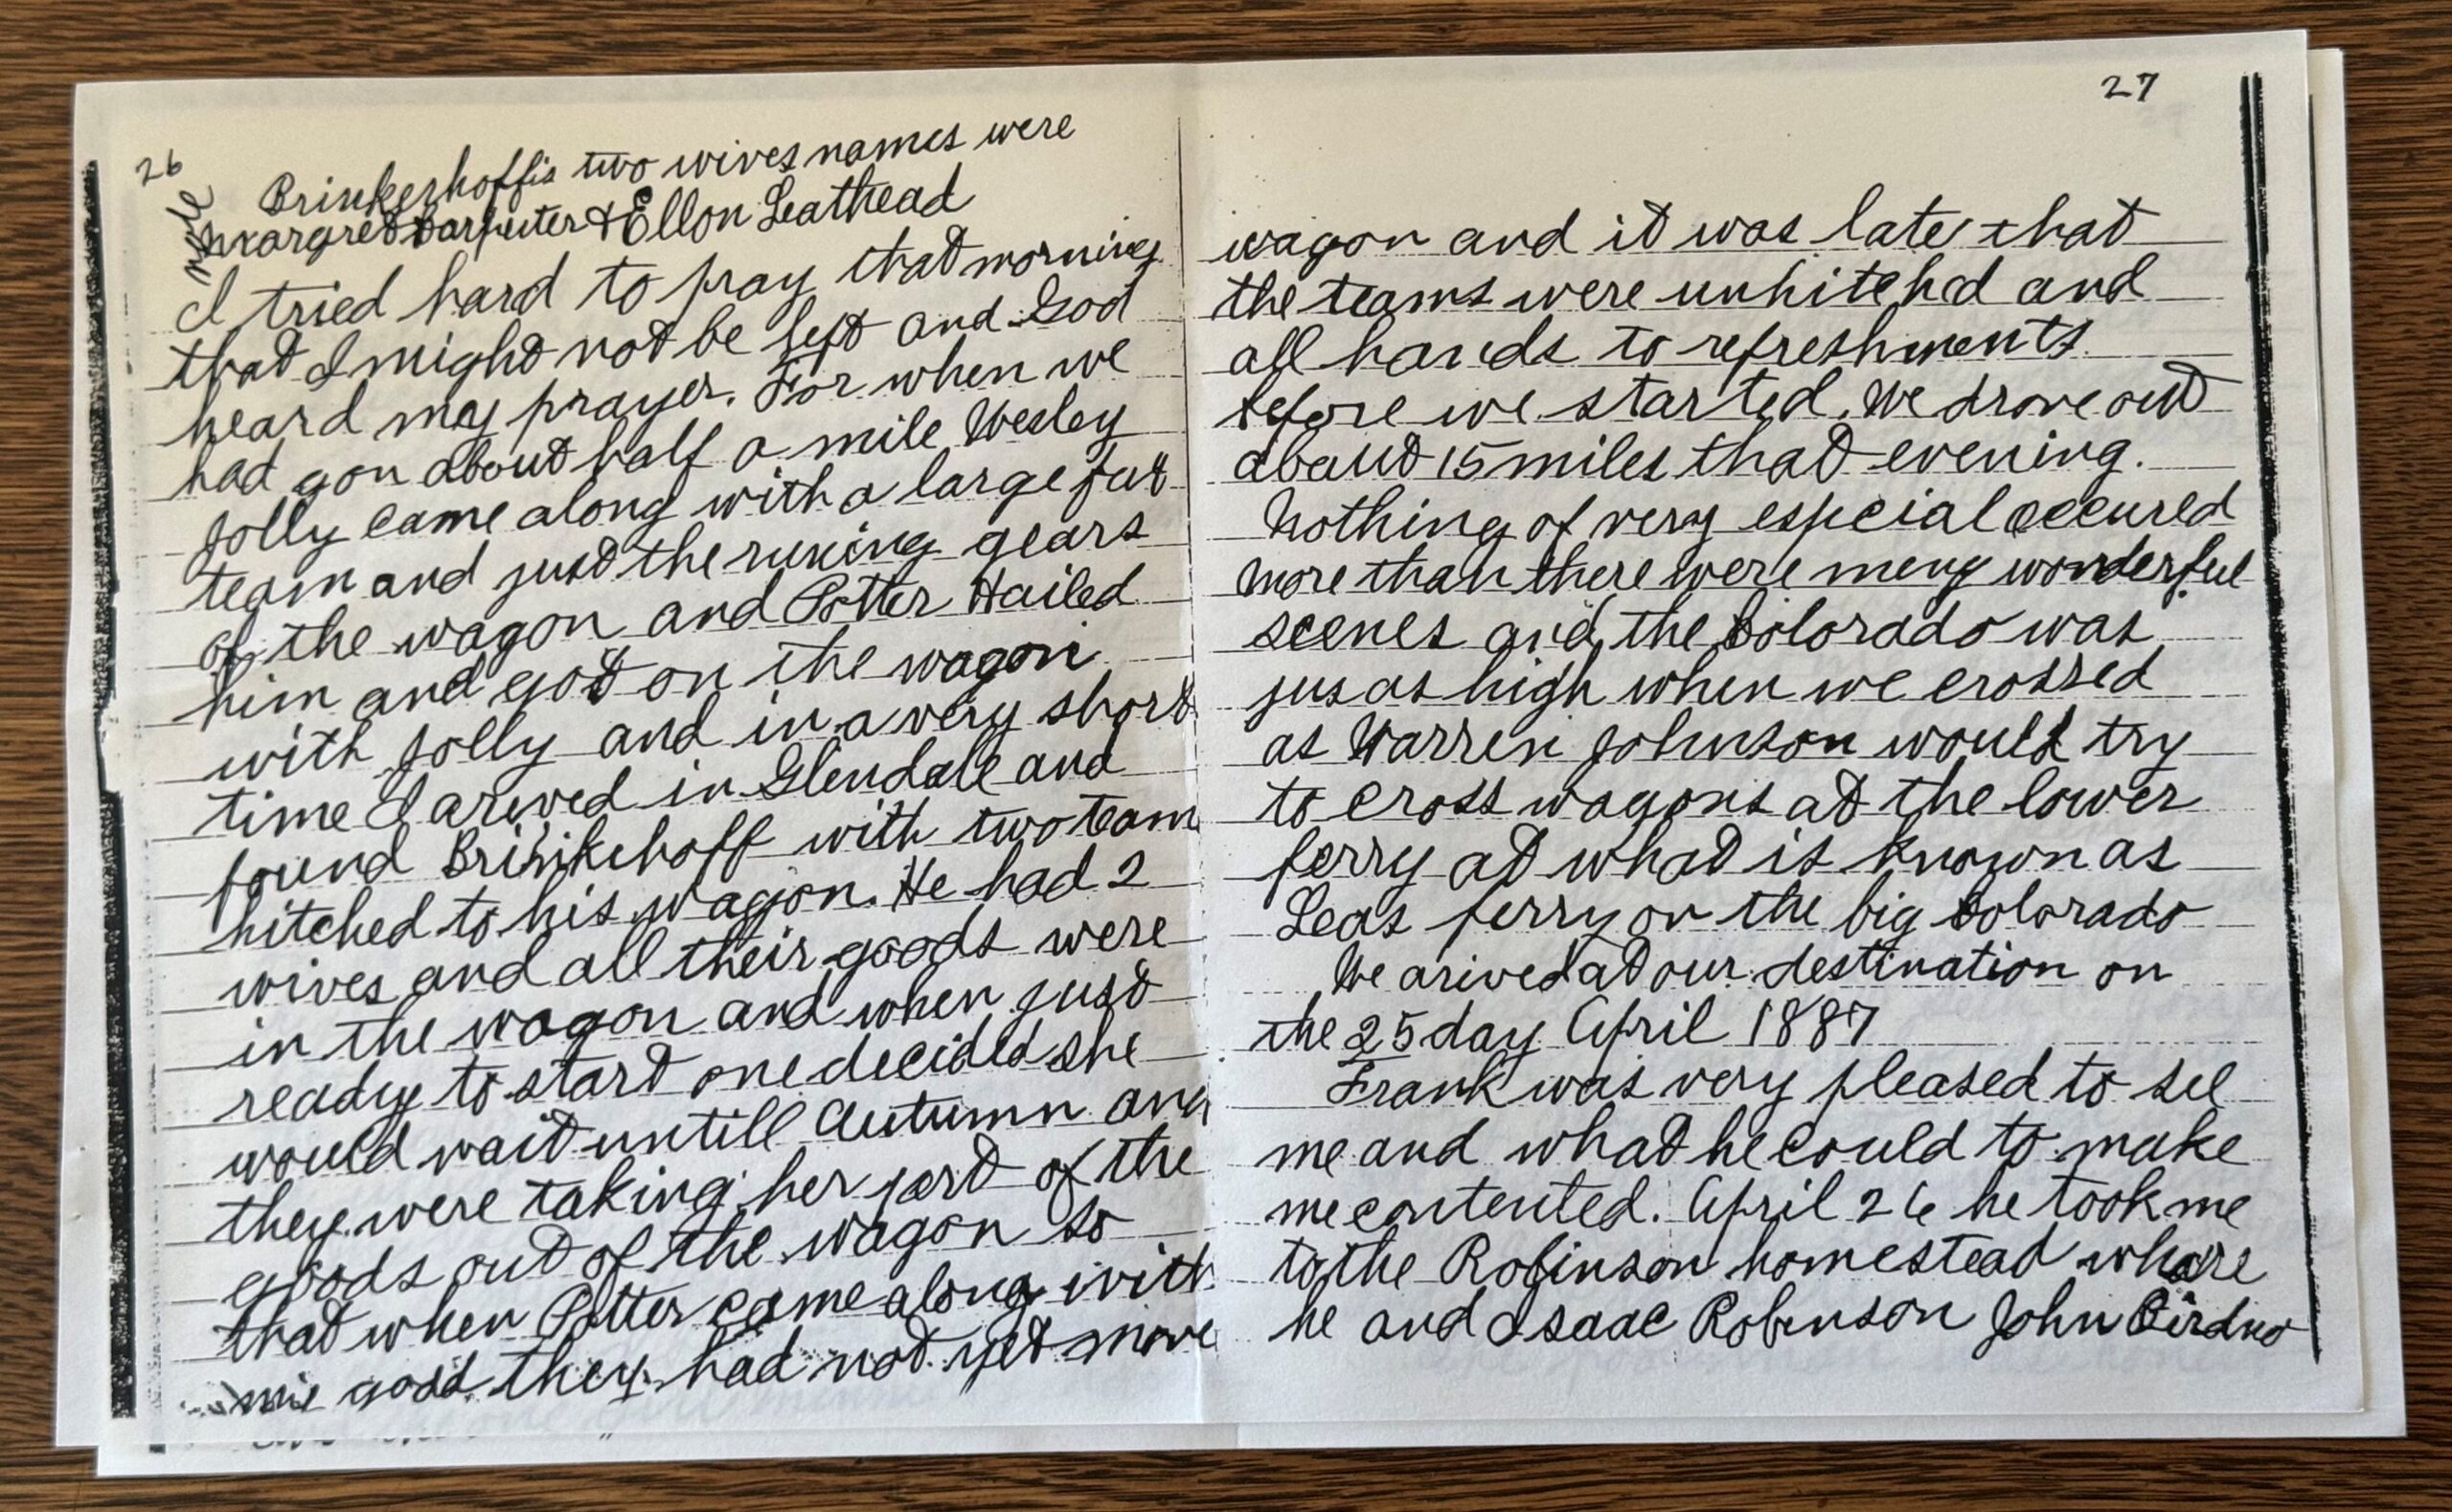 26
note
Brinkerhoffis two wives names were
Margret Carpnter & Ellon Leathead
I tried hard to pray that morning
that I might not be left and God
heard my prayer. For when we
had gon about half a mile Wesley
Jolly came along with a large fat
team and just the runing gears
of the wagon and Potter Hailed
him and got on the wagon
with Jolly and in a very short
time I arived in Glendale and
found Brinkehoff with two team
hitched to his wagon. He had 2
wives and all their goods were
in the wagon and when just
ready to start one decided she
would wait untill Autumn and
they were taking her part of the
goods out of the wagon so
that when Potter came along with
they had not yet move
27
wagon and it was late that
the teams were unhitched and
all hands to refreshments
before we started. We drove out
about 15 miles that evening.
Nothing of very especial occured
more than there were meny wonderful
scenes and the Colorado was
jus as high when we crossed
as Warren Johnson would try
to cross wagons at the lower
ferry at what is known as
Leas ferry on the big Colorado
We arived at our destination on
the 25 day April 1887
Frank was very pleased to see
me and what he could to make
me contented. April 26 he took me
to the Robinson homestead whare
he and Isaac Robinson John Birdno